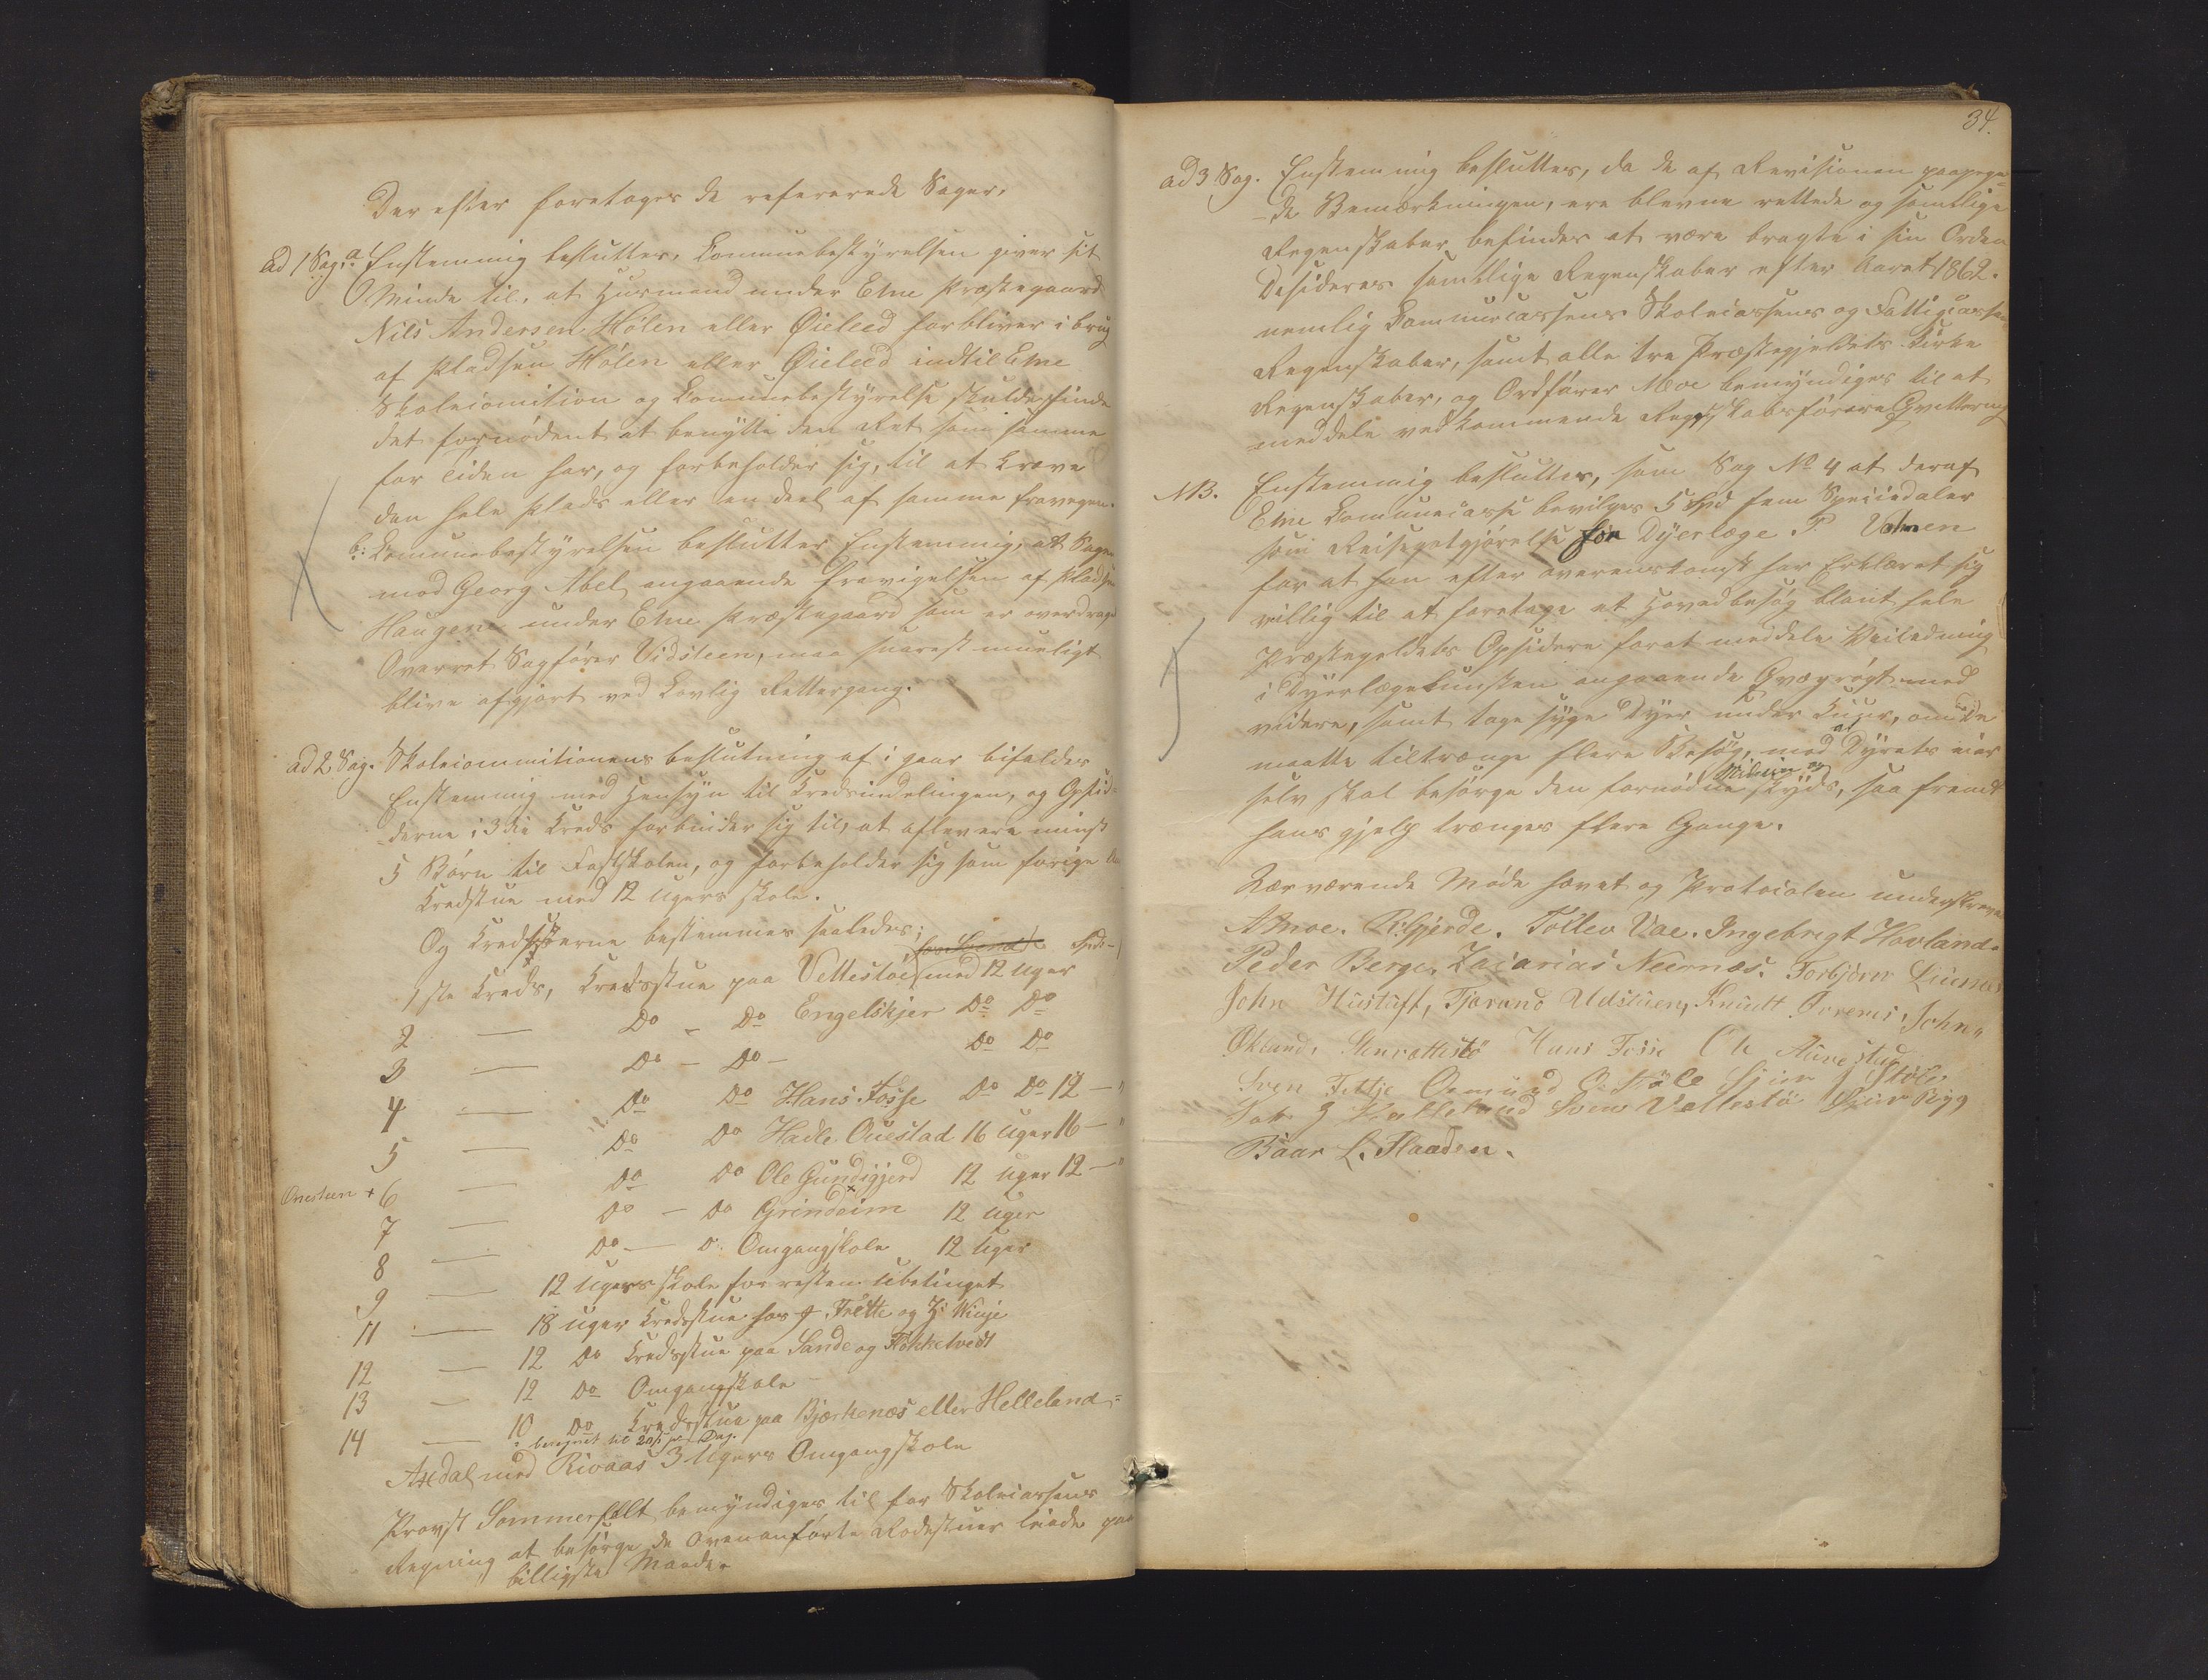 Der efter foretoges de refererede Sager.
Ad 1 Sag. a: Enstemmig besluttes, Communebestyrelsen giver sit
Minde til, at Husmand under Etne Præstegaard
Nils Andersen Hölen eller Öieleed forbliver i brug
af Pladsen Hölen eller Öieleed indtil Etne
Skolecomition og Communebestyrelse skulde finde
det fornødent at benytte den Ret som samme
for tiden har, og forbeholder sig, til at kræve
den hele Plads eller en deel af samme fravegen.
b: Communebestyrelsen beslutter Enstemmig, at Sagen
mod Georg Abel angaaende fravigelsen af Pladsen
Haugene under Etne Præstegaard som er overdraget
Overret Sagfører Vidsteen, maa snarest mueligt
blive afgjort ved Lovlig Rettergang.
ad 2 Sag. Skolecommitionens beslutning af i gaar bifaldes
Enstemmig med Hensyn til Kredsindelingen, og Opsid-
derne i 3die Kreds forbinder sig til, at aflevere mindst
5 Børn til Fastskolen, og forbeholder sig som forige
Kredstue med 12 Ugers Skole.
Og Kredstuerne bestemmes saaledes;
1ste Kreds, Kredsstue paa Vettestöe med 12 Uger
2 — Do - Do Engelskjer Do Do
3 — Do - Do - Do Do
4 — Do Do Hans Fosse Do Do 12 — "
5 — Do Do Hadle Ouestad 16 Uger 16 — "
Onesteen + 6 — Do Do Ole Gundigjerd 12 Uger 12 — "
7 — Do - Do Grindeim 12 Uger
8 — Do — D: Omgangskole 12 Uger
9 — 12 Ugers Skole for resten Ubetinget
11 — 18 Uger Kredsstue hos J. Frette og H: Winje
12 — 12 Do Kredsstue paa Sande og Flokketvedt
13 — 12 Do Omgangskole
14 — 10 Do Kredsstue paa Bjærkenæs eller Helleland
beregnet til 20 ß pr Dag.
Axdal med Rivaas 3 Ugers Omgangskole
Provst Sommerfelt bemyndiges til for Skolecassens
Regning at besørge de Ovenanførte Rodestuer leiede paa
billigste Maade.
34.
ad 3 Sag. Enstemmig besluttes, da de af Revisionen paapege-
de Bemærkninger, ere blevne rettede og samtlige
Regenskaber befindes at være bragte i sin Orden
Desideres samtlige Regenskaber efter Aaret 1862.
nemlig Communecassens Skolecassens og Fattigcassens
Regenskaber, samt alle tre Præstegjeldets Kirke
Regenskaber, og Ordfører Moe bemyndiges til at
meddele vedkommende Regnskabsførere Qvittering
NB. Enstemmig besluttes, som Sag No 4 at deraf
Etne Communecasse bevilges 5 Spd fem Speciedaler
som Reisegotgjørelse for Dyerlæge P. Valen
for at han efter overenskomst har Erklæret sig
villig til at foretage et Hovedbesøg blant hele
Præstegeldets Opsidere forat meddele Veiledning
i Dyerlægekunsten angaaende Qvægrøgt med
videre, samt tage syge Dyer under Kuur, om De
maatte tiltrænge flere Besøg, mod at Dyrets eier
selv skal besørge den fornødne Midicin og Skyds, saa fremt
hans hjelp trænges flere Gange.
Nærværende Møde hævet og Protocolen underskreven
A Moe. R: Gjerde. Tollev Vae. Ingebrigt Hovland.
Peder Berge, Zacarias Neernæs. Torbjörn Lunnes
John Hustuft, Tjerand Udstuen, Knudt Torenis, John
Ökland, Sten Vettestö Hans Fosse
Sven Fettje Osmund O. Ståle Sjur Støle
Sven Vettestö
Baar L. Flaaden.